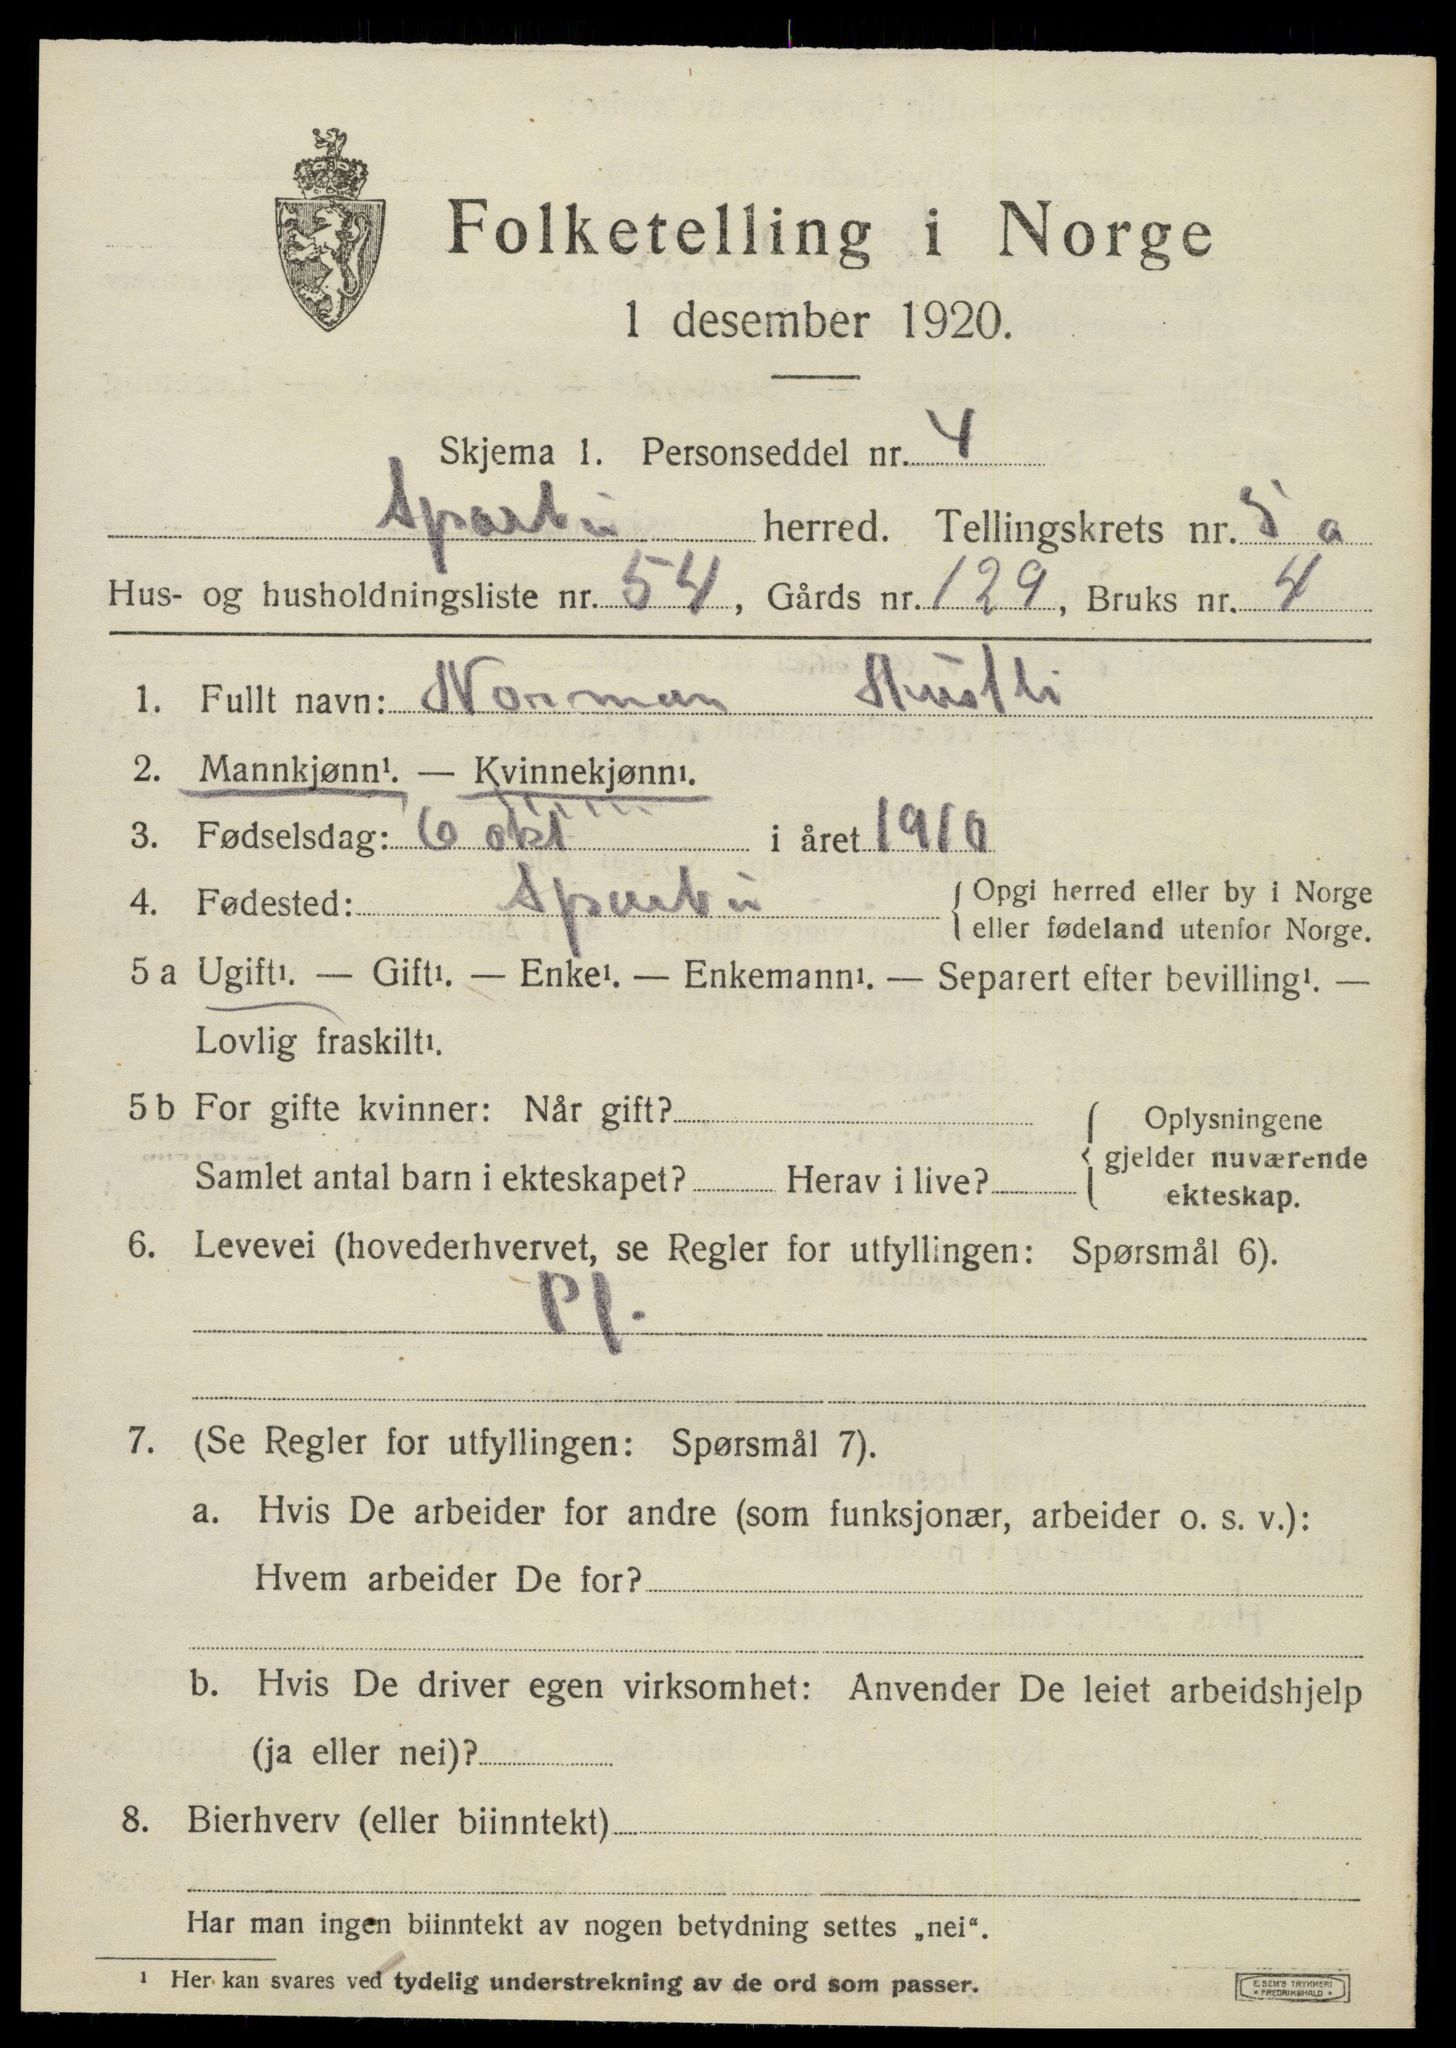 Folketelling i Norge
1 desember 1920.
Skjema 1. Personseddel nr. 4
Sparbu herred. Tellingskrets nr. 5 a
Hus- og husholdningsliste nr. 54, Gårds nr. 129, Bruks nr. 4
1. Fullt navn: Norman
2. Mannkjønn¹. — Kvinnekjønn¹.
3. Fødselsdag: 6 okt i året 1910
4. Fødested: Sparbu { Opgi herred eller by i Norge
eller fødeland utenfor Norge.
5 a Ugift¹. — Gift¹. — Enke¹. — Enkemann¹. — Separert efter bevilling¹. —
Lovlig fraskilt¹.
5 b For gifte kvinner: Når gift?
Samlet antal barn i ekteskapet? Herav i live?
{ Oplysningene
gjelder nuværende
ekteskap.
6. Levevei (hovederhvervet, se Regler for utfyllingen: Spørsmål 6).
Pf.
7. (Se Regler for utfyllingen: Spørsmål 7).
a. Hvis De arbeider for andre (som funksjonær, arbeider o. s. v.):
Hvem arbeider De for?
b. Hvis De driver egen virksomhet: Anvender De leiet arbeidshjelp
(ja eller nei)?
8. Bierhverv (eller biinntekt)
Har man ingen biinntekt av nogen betydning settes „nei“.
¹ Her kan svares ved tydelig understrekning av de ord som passer.
E. SEM'S TRYKKERI
* FREDRIKSHALD *